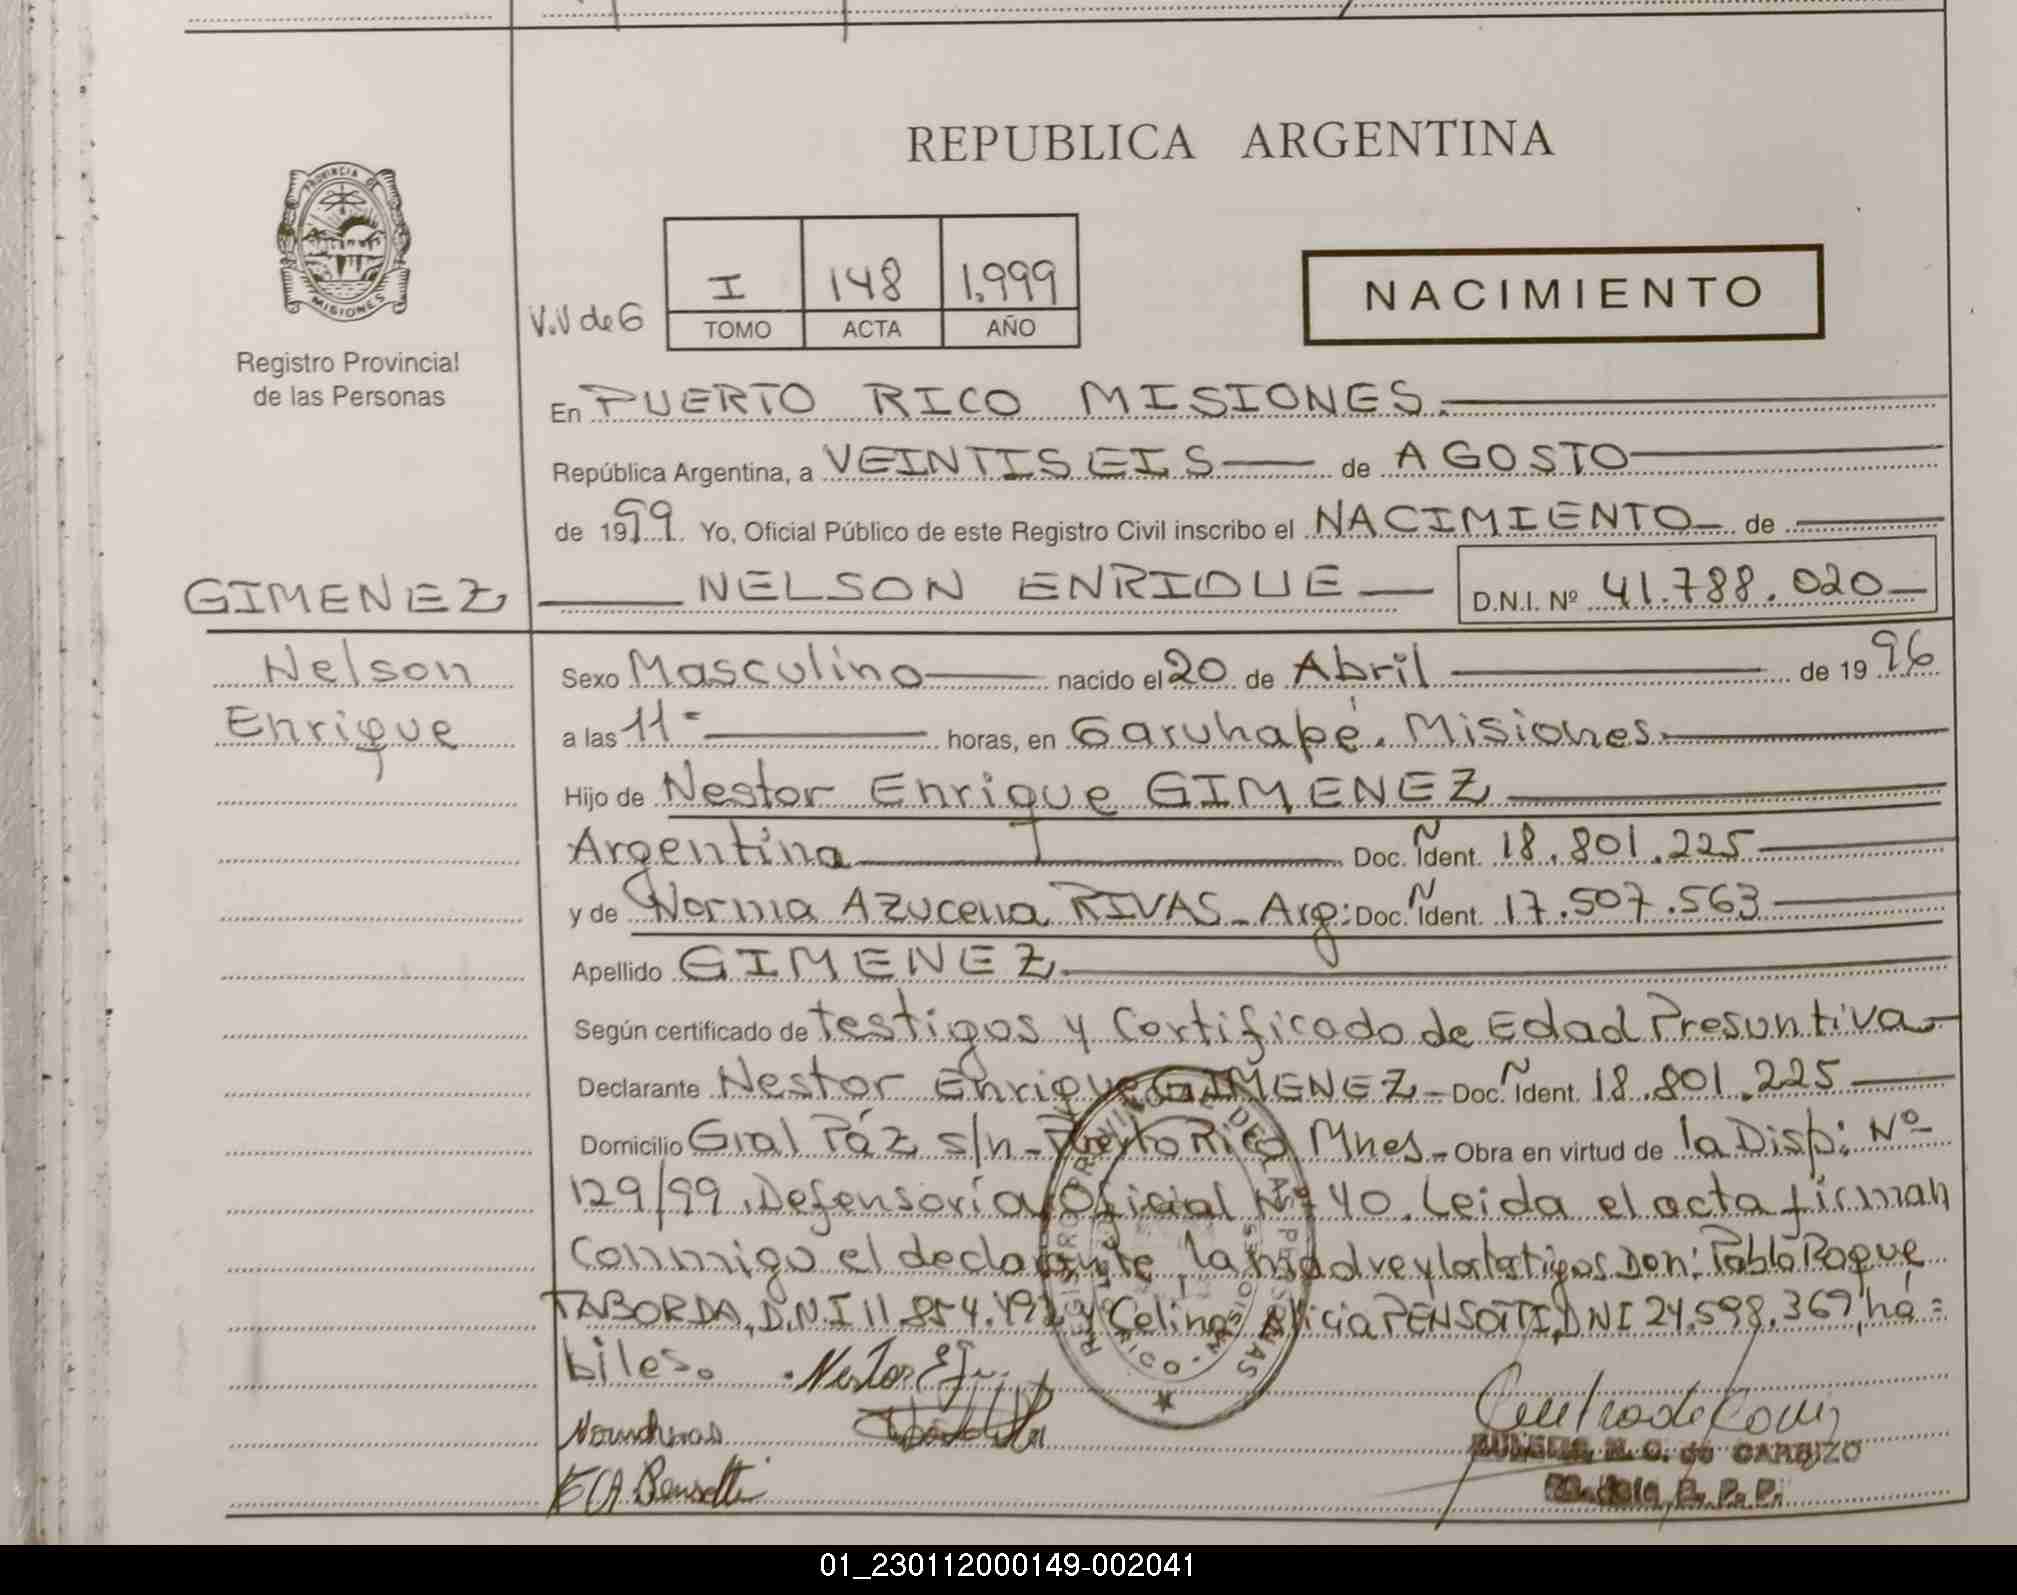 REPUBLICA ARGENTINA
PROVINCIA DE MISIONES
Registro Provincial
de las Personas
V.V de G
I 148 1.999
TOMO ACTA AÑO
NACIMIENTO
En PUERTO RICO MISIONES.
República Argentina, a VEINTISEIS de AGOSTO
de 1999. Yo, Oficial Público de este Registro Civil inscribo el NACIMIENTO de
GIMENEZ NELSON ENRIQUE D.N.I. Nº 41.788.020
Nelson Sexo Masculino nacido el 20 de Abril de 1996
Enrique a las 11 horas, en Garuhapé. Misiones.
Hijo de Nestor Enrique GIMENEZ
Argentina Doc. Ñ Ident. 18.801.225
y de Norma Azucena RIVAS - Arg: Doc. Ñ Ident. 17.507.563
Apellido GIMENEZ
Según certificado de testigos y Certificado de Edad Presuntiva
Declarante Nestor Enrique GIMENEZ - Doc. Ñ Ident. 18.801.225
Domicilio Gral Páz s/n - Puerto Rico Mnes. - Obra en virtud de la Disp: Nº
129/99. Defensoría Oficial Nº 40. Leida el acta firman
conmigo el declarante, la madre y los testigos Don: Pablo Roque
TABORDA, D.N.I 11.854.492 y Celina Alicia PENSOTTI, DNI 24.598.369, há=
biles.
REGISTRO PROVINCIAL DE LAS PERSONAS
de CARDOZO
R. P. P.
01_230112000149-002041